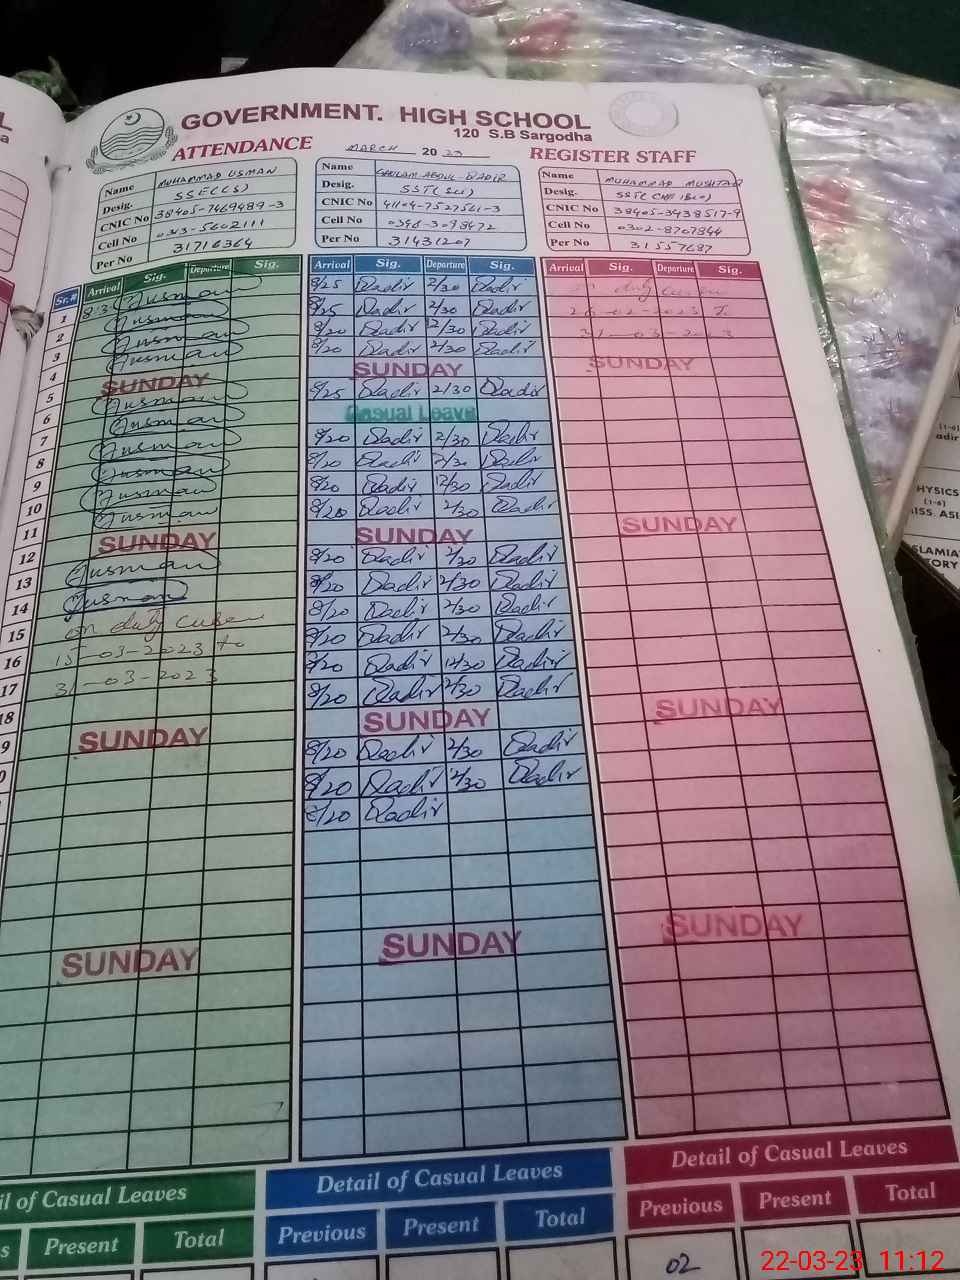 GOVERNMENT. HIGH SCHOOL
120 S.B Sargodha
ATTENDANCE MARCH 2023 REGISTER STAFF
Name MUHAMMAD USMAN
Desig. SSE(CS)
CNIC No 38405-7469489-3
Cell No 0343-5602111
Per No 31716364
Name GHULAM ABDUL QADIR
Desig. SST
CNIC No 41104-7527561-3
Cell No 0346-3098472
Per No 31431207
Name MUHAMMAD MUSHTAQ
Desig. SST
CNIC No 38405-3438517-9
Cell No 0302-8707844
Per No 31557687
Sr.# Arrival Sig. Departure Sig.
Arrival Sig. Departure Sig.
Arrival Sig. Departure Sig.
1 Jusman 8/25 Qadir 2/30 Qadir on duty
2 Jusman 8/25 Qadir 2/30 Qadir
3 Jusman 8/20 Qadir 2/30 Qadir 31-03-2023
4 Jusman 8/20 Qadir 2/30 Qadir
5 SUNDAY SUNDAY SUNDAY
6 Jusman 8/25 Qadir 2/30 Qadir
7 Jusman Casual Leave
8 Jusman 8/20 Qadir 2/30 Qadir
9 Jusman 8/20 Qadir 2/30 Qadir
10 Jusman 8/20 Qadir 12/30 Qadir
11 Jusman 8/20 Qadir 2/30 Qadir
12 SUNDAY SUNDAY SUNDAY
13 Jusman 8/20 Qadir 2/30 Qadir
14 Jusman 8/20 Qadir 2/30 Qadir
15 on duty 8/20 Qadir 2/30 Qadir
16 15-03-2023 to 8/20 Qadir 2/30 Qadir
17 31-03-2023 8/20 Qadir 12/30 Qadir
18 8/20 Qadir 2/30 Qadir
9 SUNDAY SUNDAY SUNDAY
0 8/20 Qadir 2/30 Qadir
8/20 Qadir 2/30 Qadir
8/20 Qadir
SUNDAY SUNDAY SUNDAY
il of Casual Leaves
Detail of Casual Leaves
Detail of Casual Leaves
s Present Total
Previous Present Total
Previous Present Total
02
22-03-23 11:12
(1-6)
adir
HYSICS
(1-6)
ISS. ASI
SLAMIA
TORY